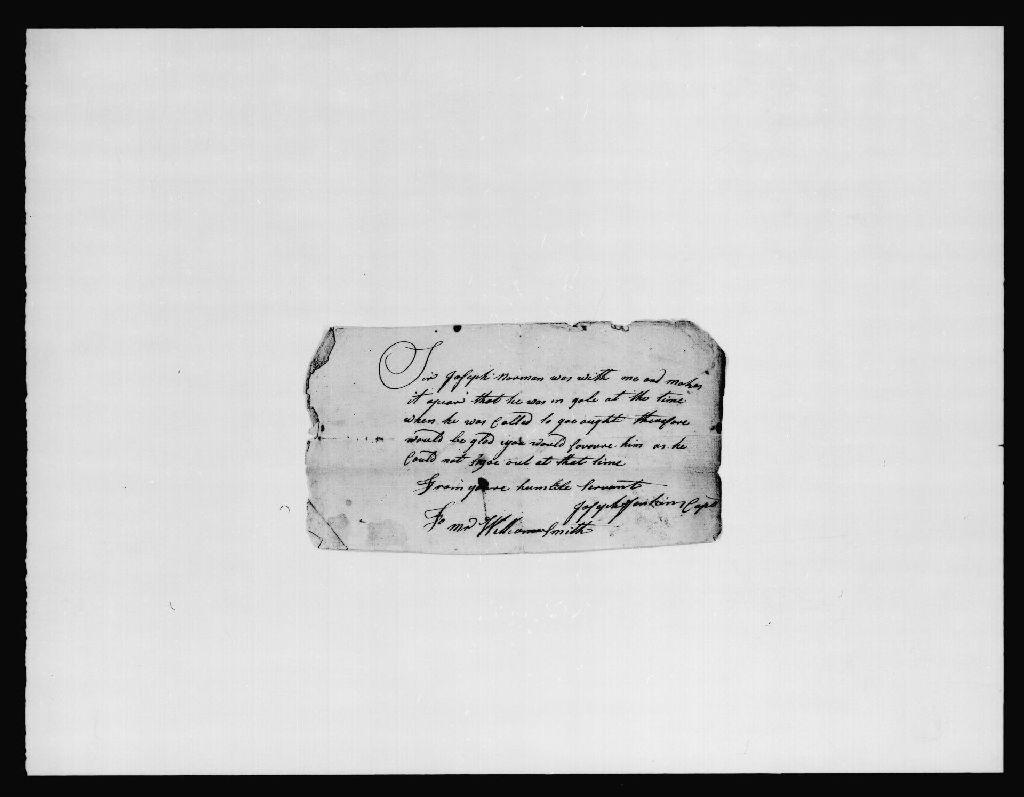 Sir Joseph Norman was with me and makes
it apear that he was in gole at the time
when he was Called to goe ought therefore
would be glad you would favoure him as he
Could not goe out at that time
From youre humble Servant
Joseph Jenkins Capt
To Mr Wellcome Smith